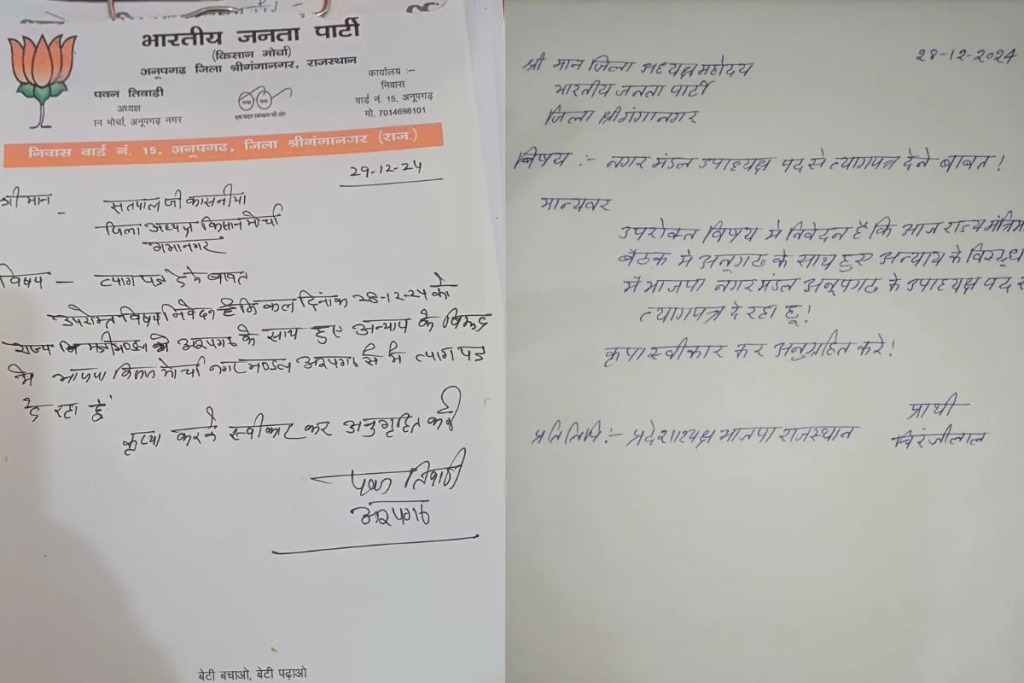 भारतीय जनता पार्टी
(किसान मोर्चा)
अनूपगढ़ जिला श्रीगंगानगर, राजस्थान
पवन तिवाड़ी
अध्यक्ष
ान मोर्चा, अनूपगढ़ नगर
कार्यालय :-
निवास
वार्ड नं. 15, अनूपगढ़
मो. 7014698101
निवास वार्ड नं. 15, अनूपगढ़, जिला श्रीगंगानगर (राज.)
29-12-24
श्री मान -
सतपाल जी कासनीया
जिला अध्यक्ष किसान मोर्चा
गंगानगर
विषय - त्याग पत्र देने बाबत
उपरोक्त विषय निवेदन है कि कल दिनांक 28-12-24 को
राज्य अनूपगढ़ के साथ हुए अन्याय के विरुद्ध
मे भाजपा किसान मोर्चा नगर मण्डल अनूपगढ़ से मे त्याग पत्र
दे रहा हूं
कृप्या करके स्वीकार कर अनुगृहित करे
पवन तिवाड़ी
अनूपगढ़
बेटी बचाओ, बेटी पढ़ाओ
28-12-2024
श्री मान जिला अध्यक्ष महोदय
भारतीय जनता पार्टी
जिला श्रीगंगानगर
विषय :- नगर मंडल उपाध्यक्ष पद से त्यागपत्र देने बाबत!
मान्यवर
उपरोक्त विषय मे निवेदन है कि आज राज्य मंत्रिम
बैठक मे अनूगढ के साथ हुए अन्याय के विरुद्ध
मैं भाजपा नगरमंडल अनूपगढ के उपाध्यक्ष पद स
त्यागपत्र दे रहा हू!
कृपा स्वीकार कर अनुग्रहित करे!
प्रार्थी
चिरंजीलाल
प्रतिलिपि :- प्रदेशाध्यक्ष भाजपा राजस्थान